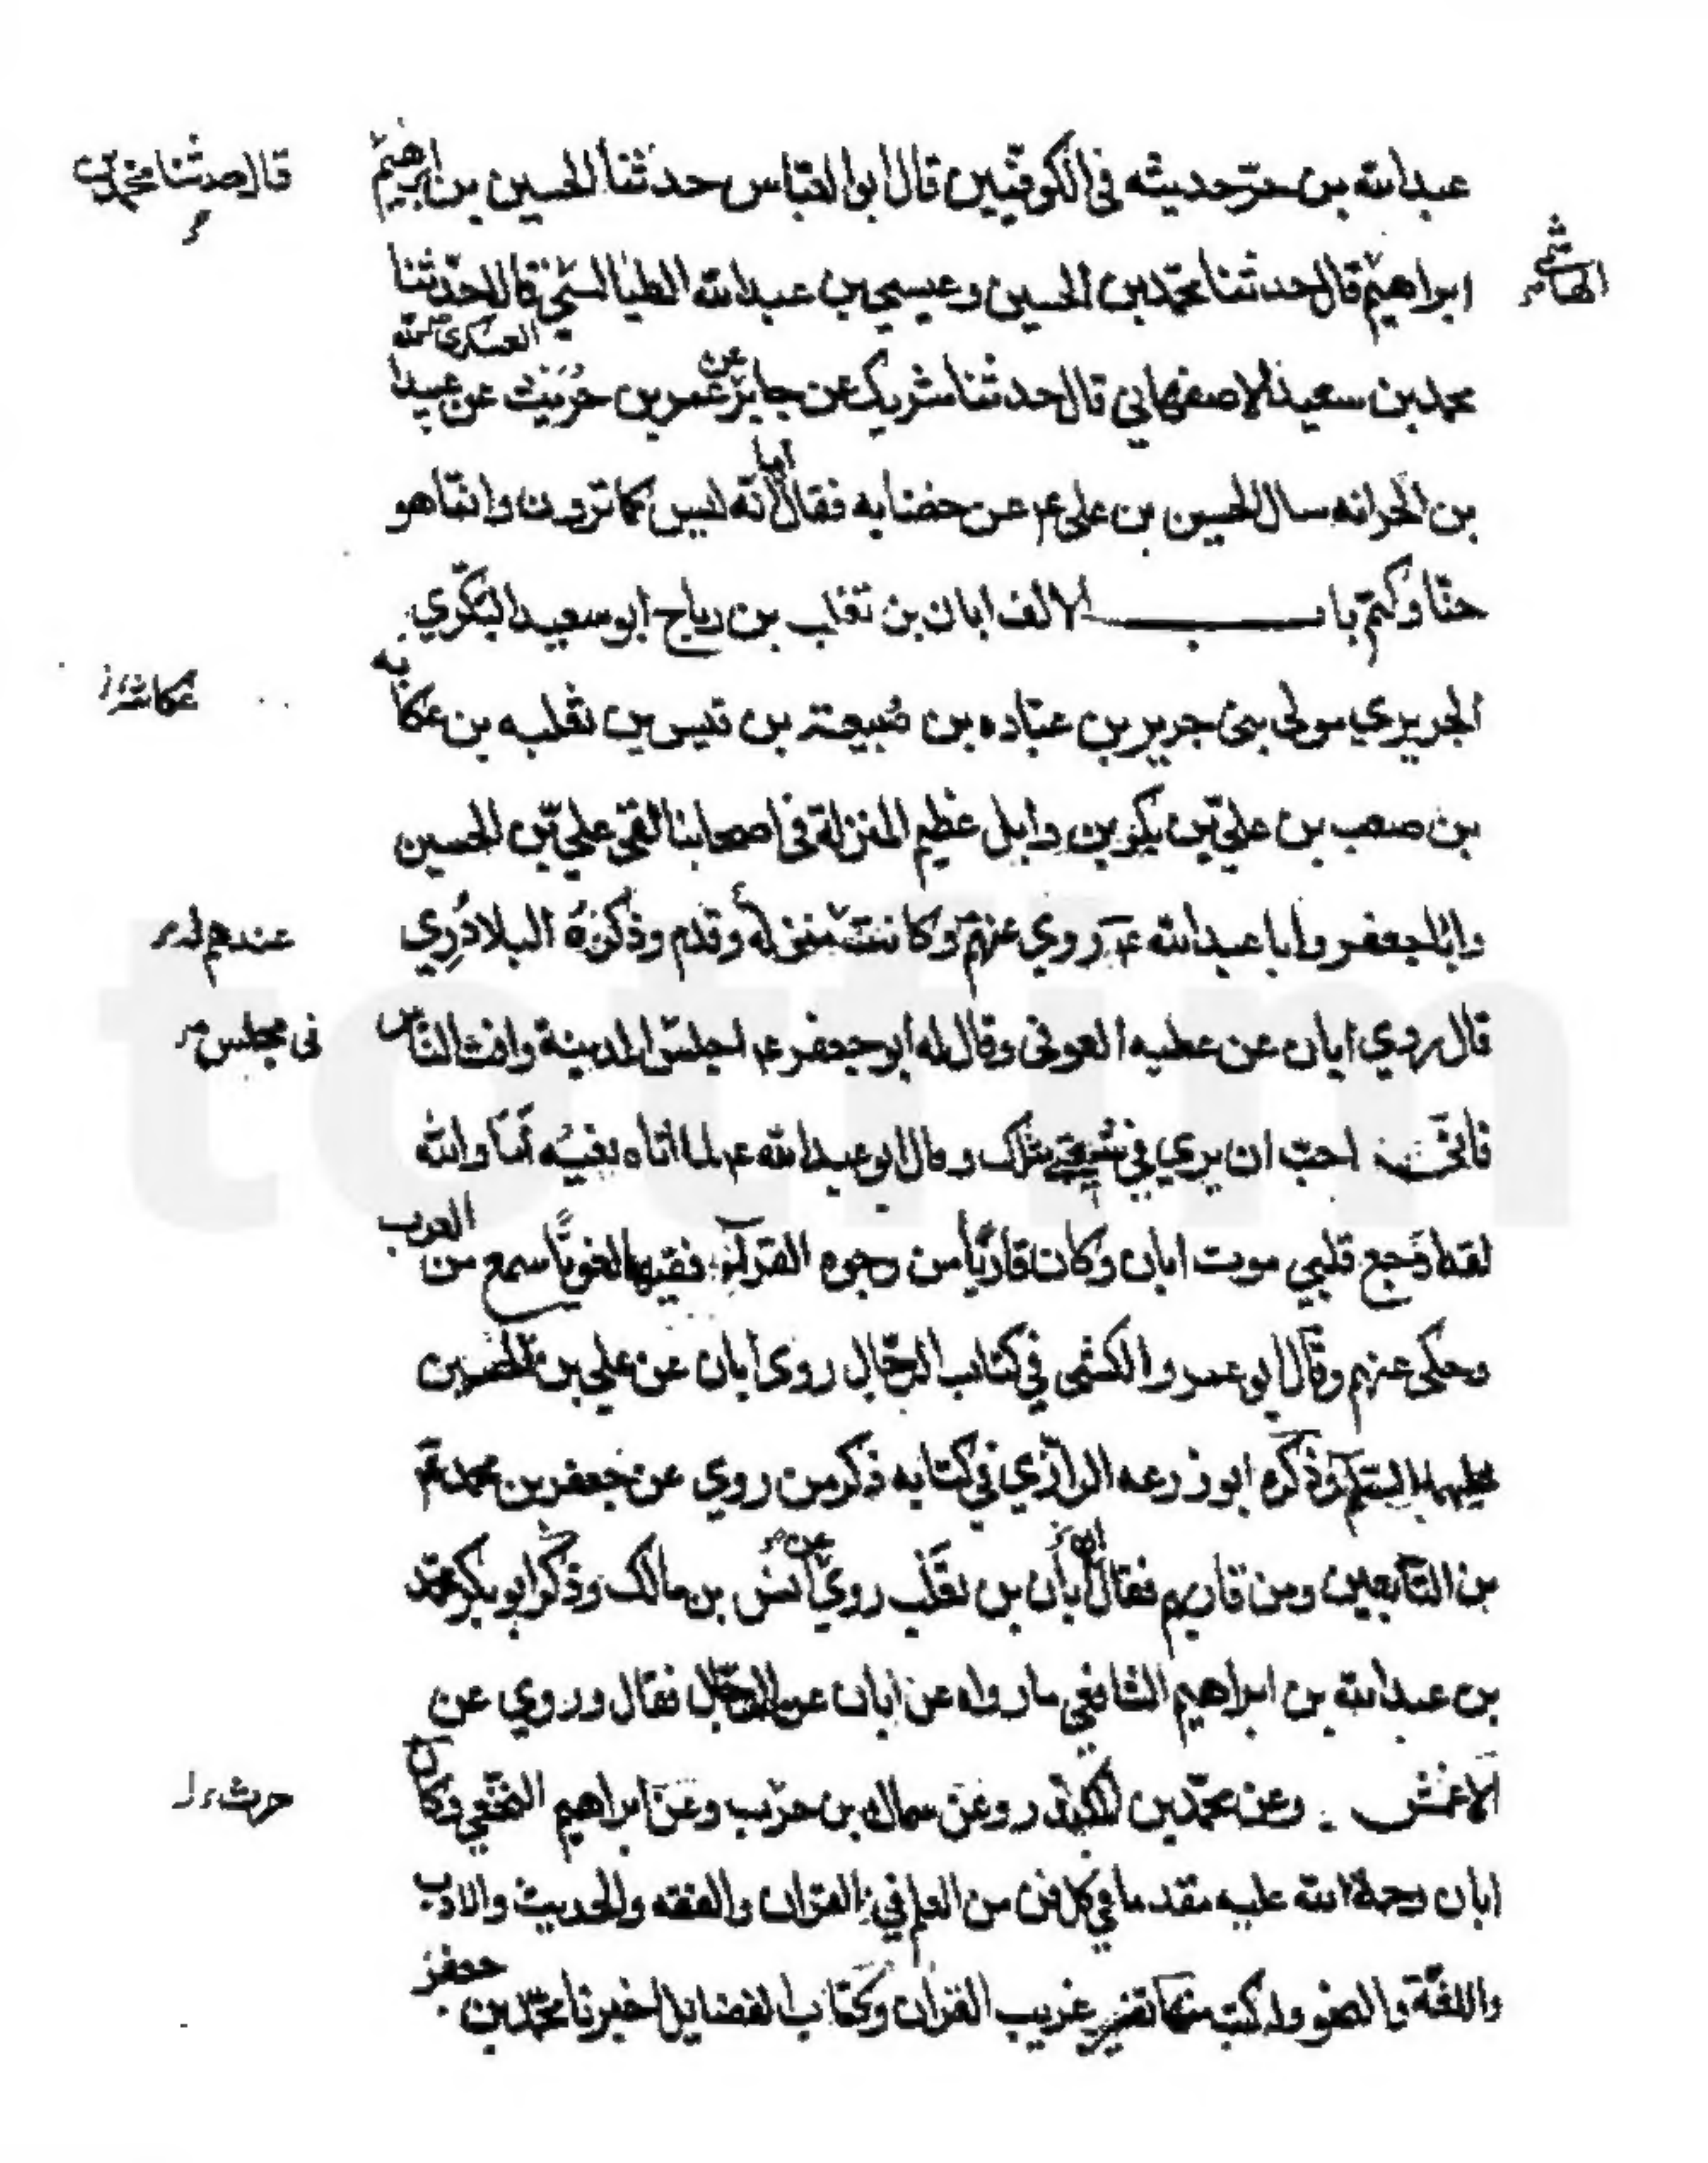 عبدالله بن حرّ حديثه في الكوفيّين قال ابو العبّاس حدثنا الحسين بن ابرهيم
قال حدثنا محمد بن
ابراهيم قال حدثنا محمّد بن الحسين وعيسى بن عبدالله الطيالسي قال حدّثنا
الهاشمي
العسكري
محمد بن سعيد الاصفهاني قال حدثنا شريك عن جابر عن عمر بن حريث عن عبيدا
بن الحر انه سال الحسين بن علي ع عن خضابه فقال اما انّه ليس كما ترون وانّما هو
حنّا وكتم باب الالف ابان بن تغلب بن رباح ابو سعيد البكري
الجريري مولى بني جرير بن عبّاده بن ضبيعة بن قيس بن ثعلبه بن عكابه
عكاشه
بن صعب بن علي بن بكر بن وايل عظيم المنزلة في اصحابنا لقى علي بن الحسين
وابا جعفر وابا عبدالله ع روي عنهم وكانت له منزلة وقدم وذكره البلاذري
عندهم
قال روي ابان عن عطيه العوفى وقال له ابو جعفر ع اجلس المدينة وافت الناس
في مجلس
فانّي احبّ ان يري في شيعتي مثلك وقال ابو عبدالله ع لما اتاه نعيه أما والله
لقد اوجع قلبي موت ابان وكان قاريًا من وجوه القرآء فقيها لغويًا سمع من العرب
وحكى عنهم وقال ابو عمرو الكشي في كتاب الرجال روى ابان عن علي بن الحسين
عليهما السلم وذكره ابو زرعه الرازي في كتابه ذكر من روي عن جعفر بن محمد ع
من التابعين ومن قاربهم فقال ابان بن تغلب روي عن انس بن مالك وذكر ابو بكر محمد
بن عبدالله بن ابراهيم الشافعي ما رواه عن ابان عن الرجال فقال وروي عن
الاعمش وعن محمّد بن المنكدر وعن سماك بن حرب وعن ابراهيم النخعي وكان
حرث
ابان رحمة الله عليه مقدما في كل فن من العلم في القرآن والفقه والحديث والادب
واللغة والنحو وله كتب منها تفسير غريب القران وكتاب الفضايل اخبرنا محمّد بن جعفر